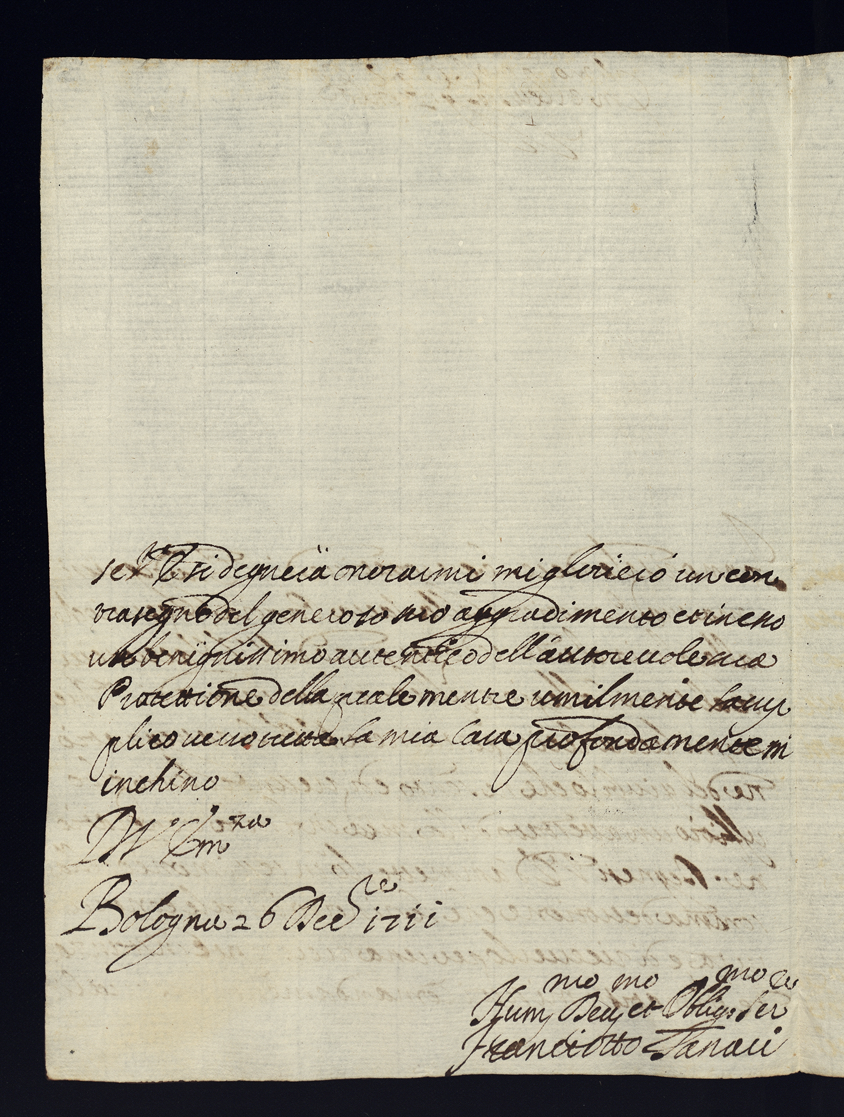 se V. E. si degnerà onorarmi mi glorierò un con
trasegno del generoso suo aggradimento et in esso
un benignissimo autentico dell'autoreuole sua
Protettione della quale mentre umilmente la sup
plico uerso tutta la mia Casa profondamente m
inchino
Di V. Em.za
Bologna 26 Dec.re 1711
Hum.mo Deu.mo et Oblig.mo Ser.e
Francesco Zanari